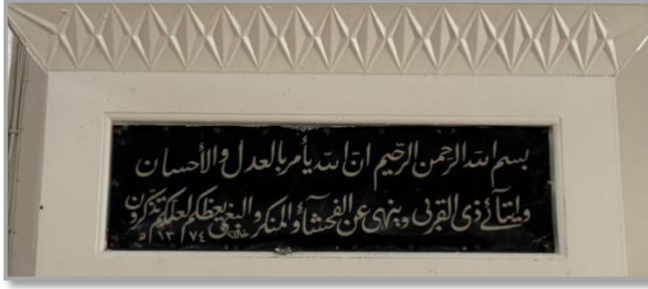 بسم الله الرحمن الرحيم ان الله يأمر بالعدل والأحسان
وايتآئ ذى القربى وينهى عن الفحشآء والمنكر والبغى يعظكم لعلكم تذكرون
٥/١٣/٧٤